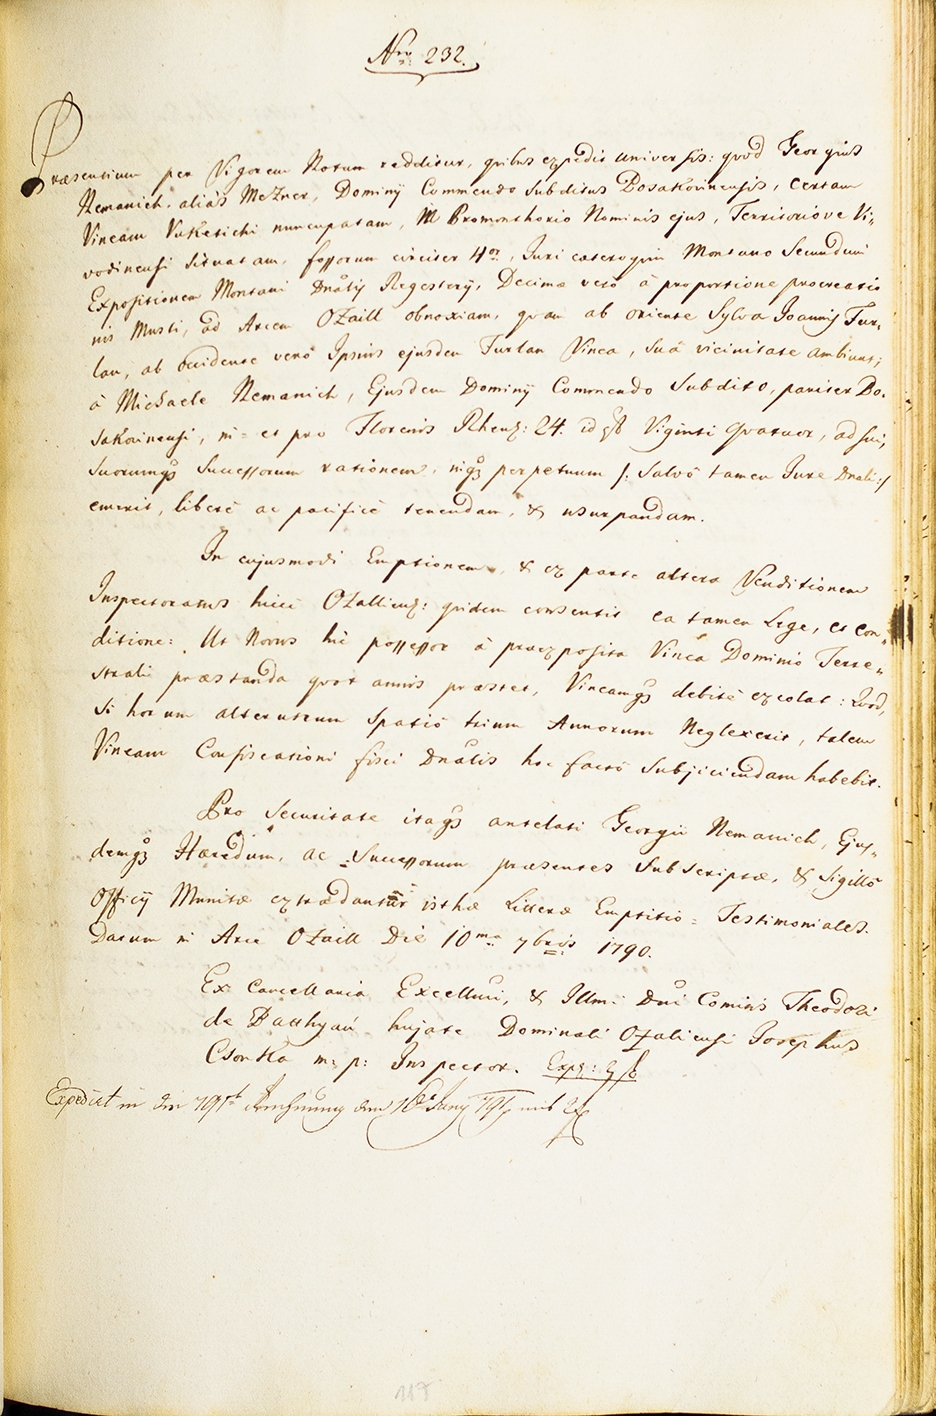 Nro 232.
Præsentium per Vigorem Notum redditur, quibus expedit universis: quod Georgius
Nemanich, aliás Mežner, Dominy Commendo Subditus Bosakovinensis, certam
Vineam Vuketichi nuncupatam, in Promonthorio Nominis ejus, Territorióve Vi-
vodinensi situatam, fossorum circiter 4or, Juri caeteroquin Montano Secundum
Expositionem Montani Dnalis Regestery, Decimæ veró à proportione procreatio
nis Musti, ad Arcem Ozaill obnoxiam, quam ab oriente Sylva Joannis Tur-
lan, ab occidente veró Ipsius ejusdem Turlan Vinea, suâ vicinitate ambiunt;
à Michaele Nemanich, Ejusdem Dominy Commendo Subdito, pariter Bo-
sakovinensi, in et pro Florenis Rhens: 24. id est Viginti Quatuor, ad sui,
suorumq Successorum rationem, inq perpetuum /: Salvô tamen Jure Dnali :/
emerit, liberè ac pacificè tenendam, & usurpandam.
In cujusmodi Emptionem, & ex parte altera Venditionem
Inspectoratus huic Ozalliens: quidem consensit ea tamen Lege, et con-
ditione: Ut Novus hic possessor à præexposita Vinea Dominio Terre-
strali præstanda quot annis præstet, Vineamq debitè excolat: Quod,
Si horum alterutrum Spatiô trium Annorum Neglexerit, talem
Vineam Confiscationi fisci Dnalis hoc factô Subjiciendam habebit.
Pro Securitate itaq antelati Georgii Nemanich, Ejus-
demq Hæredum, ac Successorum præsentes Subscriptæ, & Sigillô
Officy Munitæ extradantur isthæ Litteræ Emptitio = Testimoniales.
Datum in Arce Ozaill Die 10ma 7bris 1790.
Ex Cancellaria Excellmi, & Illmi Dni Comitis Theodori
de Batthyan hujate Dominali Ozaliensi Josephus
Csonka m: p: Inspector.
Expedict in der 791t Rechnung